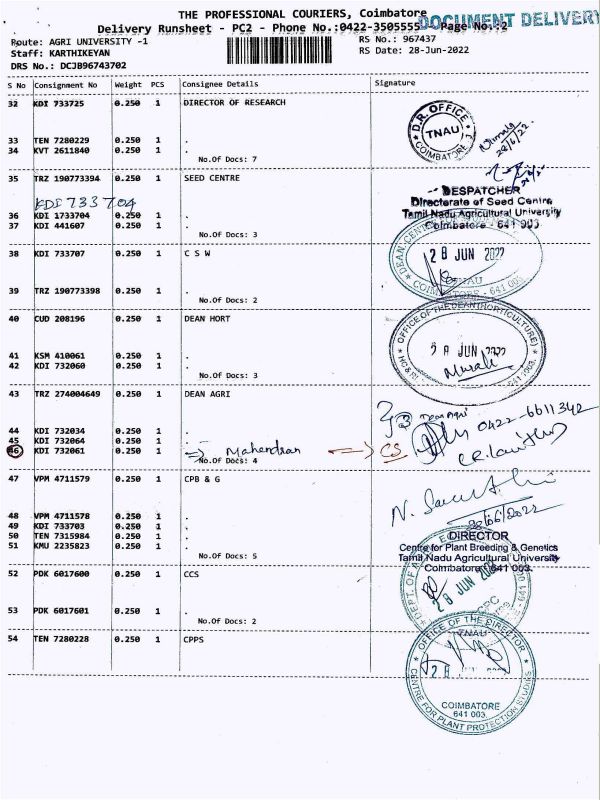 THE PROFESSIONAL COURIERS, Coimbatore
DOCUMENT DELIVERY
Delivery Runsheet - PC2 - Phone No.:0422-3505555 Page No.:2
Route: AGRI UNIVERSITY -1 RS No.: 967437
Staff: KARTHIKEYAN RS Date: 28-Jun-2022
DRS No.: DCJB96743702
S No Consignment No Weight PCS Consignee Details Signature
32 KDI 733725 0.250 1 DIRECTOR OF RESEARCH
D.R. OFFICE
TNAU
COIMBATORE
33 TEN 7280229 0.250 1 .
34 KVT 2611840 0.250 1 .
No.Of Docs: 7
35 TRZ 190773394 0.250 1 SEED CENTRE
DESPATCHER
Directorate of Seed Centre
Tamil Nadu Agricultural University
Coimbatore - 641 003
KDI 733704
36 KDI 1733704 0.250 1 .
37 KDI 441607 0.250 1 .
No.Of Docs: 3
38 KDI 733707 0.250 1 C S W
28 JUN 2022
TNAU
39 TRZ 190773398 0.250 1 .
No.Of Docs: 2
40 CUD 208196 0.250 1 DEAN HORT
OFFICE OF THE DEAN (HORTICULTURE)
28 JUN 2022
Murali
41 KSM 410061 0.250 1 .
42 KDI 732060 0.250 1 .
No.Of Docs: 3
43 TRZ 274004649 0.250 1 DEAN AGRI
Dean Agri 0422-6611342
44 KDI 732034 0.250 1 .
45 KDI 732064 0.250 1 .
46 KDI 732061 0.250 1 . Mahendran CS
No.Of Docs: 4
47 VPM 4711579 0.250 1 CPB & G
28/06/2022
48 VPM 4711578 0.250 1 .
49 KDI 733703 0.250 1 .
50 TEN 7315984 0.250 1 .
51 KMU 2235823 0.250 1 .
No.Of Docs: 5
DIRECTOR
Centre for Plant Breeding & Genetics
Tamil Nadu Agricultural University
Coimbatore 641 003.
52 PDK 6017600 0.250 1 CCS
28 JUN 2022
53 PDK 6017601 0.250 1 .
No.Of Docs: 2
54 TEN 7280228 0.250 1 CPPS
OFFICE OF THE DIRECTOR
TNAU
28 JUN
COIMBATORE
641 003.
CENTRE FOR PLANT PROTECTION STUDIES